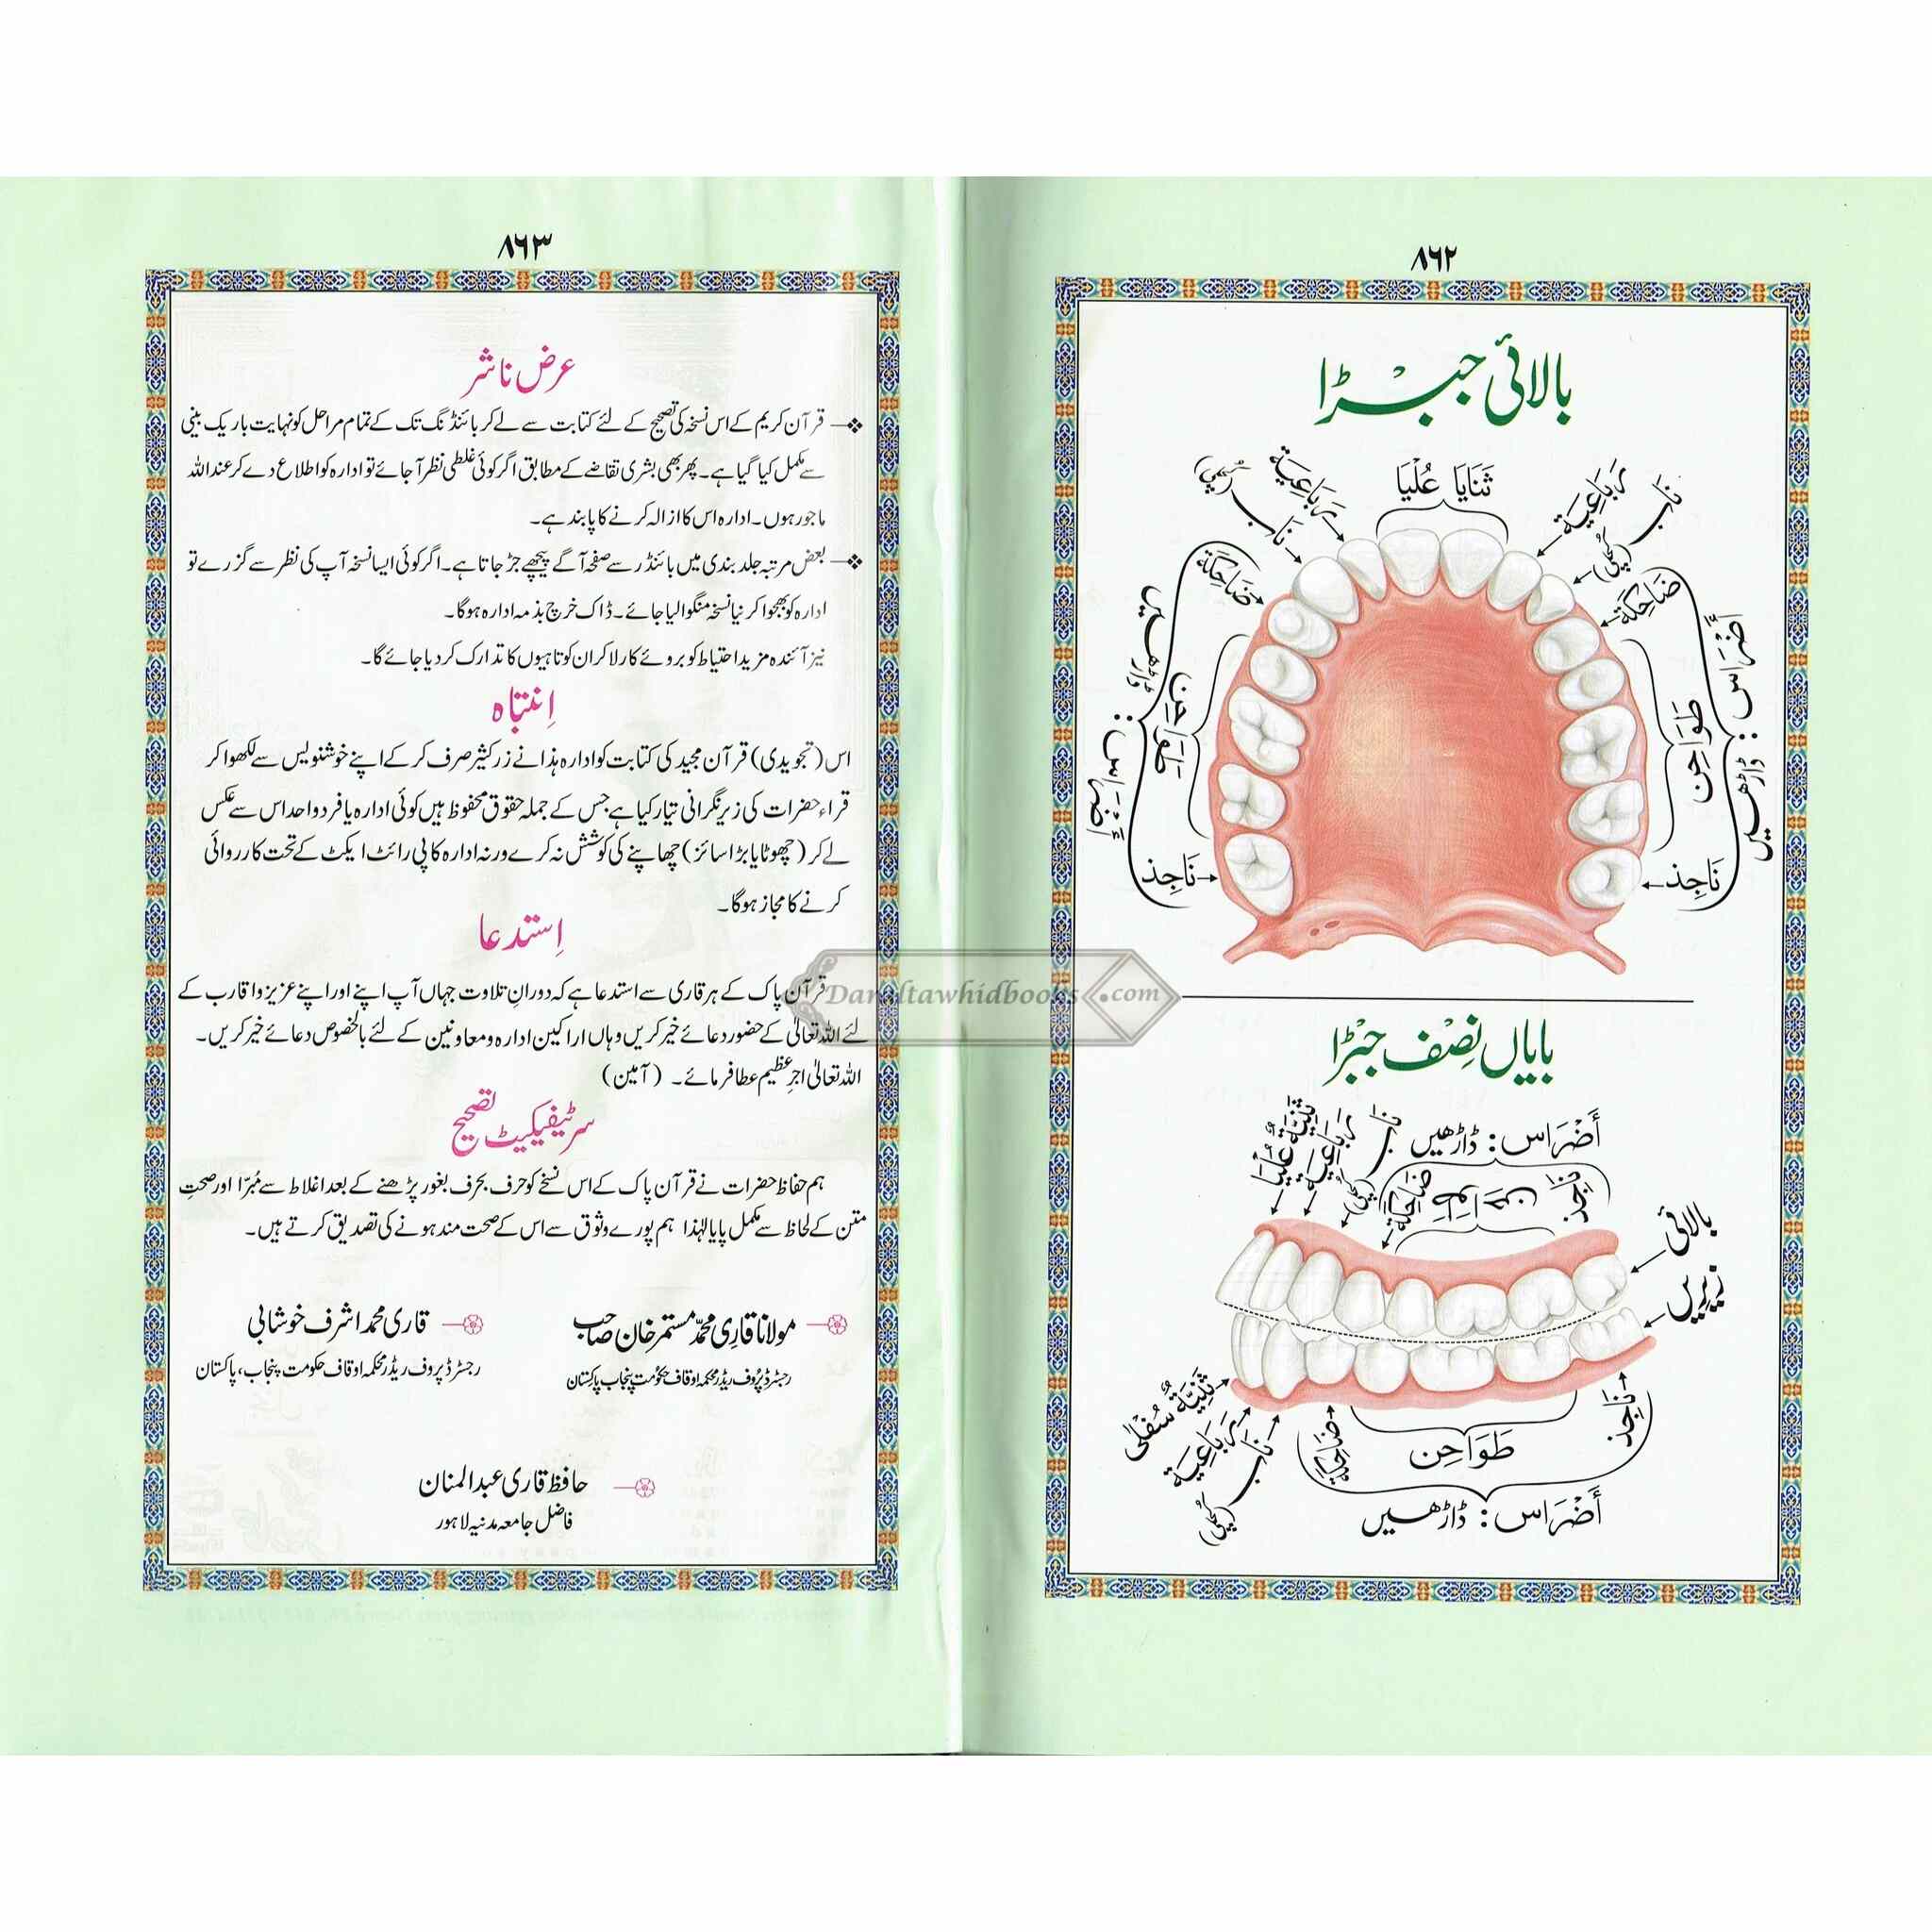 ٨٦٢
بالائی جبڑا
ثَنَایَا عُلْیَا
رَبَاعِیَة
نَاب
(کچلی)
ضَاحِکَة
طَوَاحِن
نَاجِذ
أَضْرَاس: ڈاڑھیں
رَبَاعِیَة
نَاب
(کچلی)
ضَاحِکَة
طَوَاحِن
نَاجِذ
أَضْرَاس: ڈاڑھیں
بایاں نِصْف جبْڑا
أَضْرَاس: ڈاڑھیں
ثَنِیَّة عُلْیَا
رَبَاعِیَة
نَاب
(کچلی)
ضَاحِکَة
طَوَاحِن
نَاجِذ
بالائی
زیریں
ثَنِیَّة سُفْلٰی
رَبَاعِیَة
نَاب
(کچلی)
ضَاحِکَة
طَوَاحِن
نَاجِذ
أَضْرَاس: ڈاڑھیں
٨٦٣
عرض ناشر
قرآن کریم کے اس نسخہ کی تصحیح کے لئے کتابت سے لے کر بائنڈنگ تک کے تمام مراحل کو نہایت باریک بینی
سے مکمل کیا گیا ہے۔ پھر بھی بشری تقاضے کے مطابق اگر کوئی غلطی نظر آ جائے تو ادارہ کو اطلاع دے کر عنداللہ
ماجور ہوں۔ ادارہ اس کا ازالہ کرنے کا پابند ہے۔
بعض مرتبہ جلد بندی میں بائنڈر سے صفحہ آگے پیچھے جڑ جاتا ہے۔ اگر کوئی ایسا نسخہ آپ کی نظر سے گزرے تو
ادارہ کو بھجوا کر نیا نسخہ منگوا لیا جائے۔ ڈاک خرچ بذمہ ادارہ ہوگا۔
نیز آئندہ مزید احتیاط کو بروئے کار لا کر ان کوتاہیوں کا تدارک کر دیا جائے گا۔
اِنتباہ
اس (تجویدی) قرآن مجید کی کتابت کو ادارہ ہذا نے زرِ کثیر صرف کر کے اپنے خوشنویس سے لکھوا کر
قراء حضرات کی زیرِ نگرانی تیار کیا ہے جس کے جملہ حقوق محفوظ ہیں کوئی ادارہ یا فرد واحد اس سے عکس
لے کر (چھوٹا یا بڑا سائز) چھاپنے کی کوشش نہ کرے ورنہ ادارہ کاپی رائٹ ایکٹ کے تحت کارروائی
کرنے کا مجاز ہوگا۔
اِستدعا
قرآن پاک کے ہر قاری سے استدعا ہے کہ دورانِ تلاوت جہاں آپ اپنے اور اپنے عزیز و اقارب کے
لئے اللہ تعالیٰ کے حضور دعائے خیر کریں وہاں اراکین ادارہ و معاونین کے لئے بالخصوص دعائے خیر کریں۔
اللہ تعالیٰ اجرِ عظیم عطا فرمائے۔ (آمین)
سرٹیفیکیٹ تصحیح
ہم حفاظ حضرات نے قرآن پاک کے اس نسخے کو حرف بحرف بغور پڑھنے کے بعد اغلاط سے مُبرّا اور صحتِ
متن کے لحاظ سے مکمل پایا لہٰذا ہم پورے وثوق سے اس کے صحت مند ہونے کی تصدیق کرتے ہیں۔
مولانا قاری محمد مستمر خان صاحب
رجسٹرڈ پروف ریڈر محکمہ اوقاف حکومت پنجاب پاکستان
قاری محمد اشرف خوشابی
رجسٹرڈ پروف ریڈر محکمہ اوقاف حکومت پنجاب، پاکستان
حافظ قاری عبدالمنان
فاضل جامعہ مدنیہ لاہور
Darultawhidbooks.com